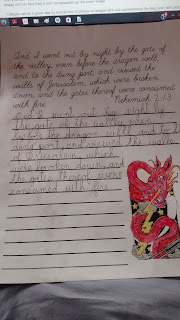 And I went out by night by the gate of
the valley, even before the dragon well,
and to the dung port, and viewed the
walls of Jerusalem, which were broken
down, and the gates thereof were consumed
with fire.
Nehemiah 2:13
And I went out by night by
the gate of the valley, even
before the dragon well, and to the
dung port, and viewed the walls
of Jerusalem, which
were broken down, and
the gates thereof were
consumed with fire